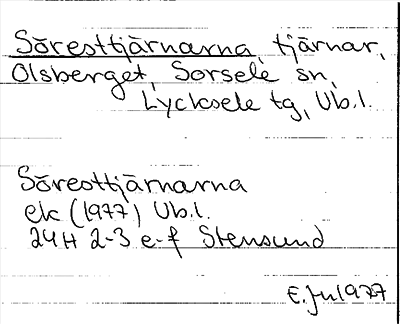 Söresttjärnarna, tjärnar,
Olsberget, Sorsele sn,
Lycksele tg, Vb.l.
Söresttjärnarna
ek (1977) Vb.l.
24H 2-3 e-f Stensund
E.Ju 1977